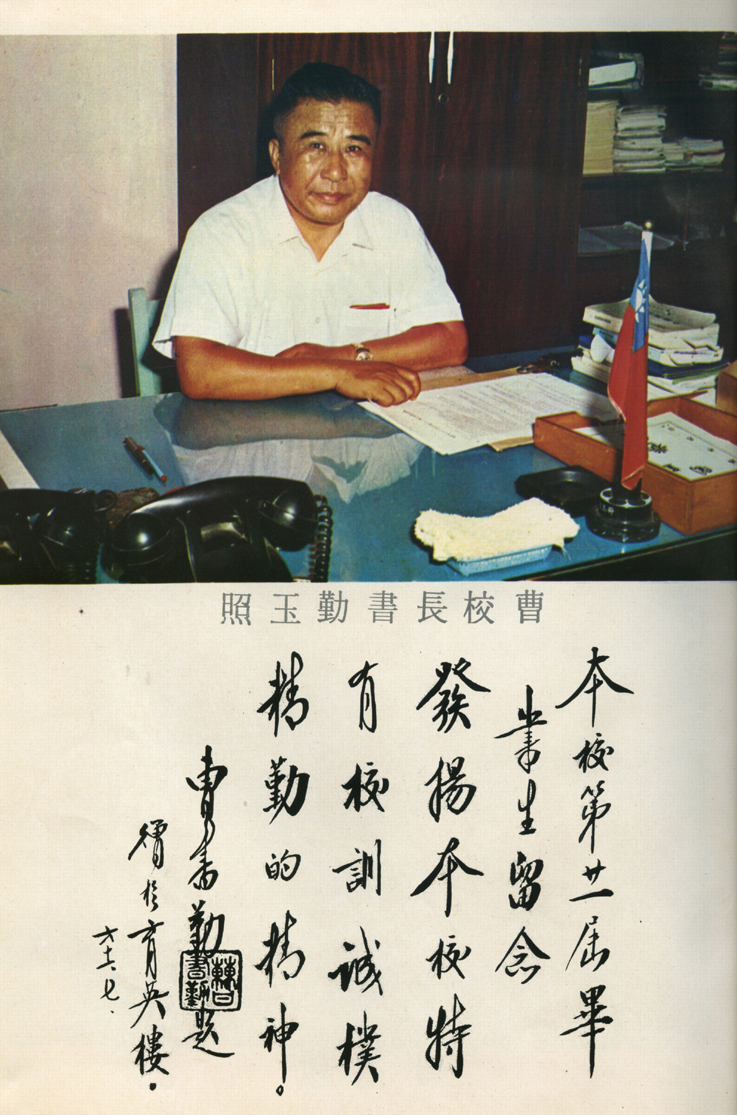 曹校長書勤玉照
本校第廿一屆畢
業生留念
發揚本校特
有校訓誠樸
精勤的精神。
曹書勤題
曹書勤
於育英樓.